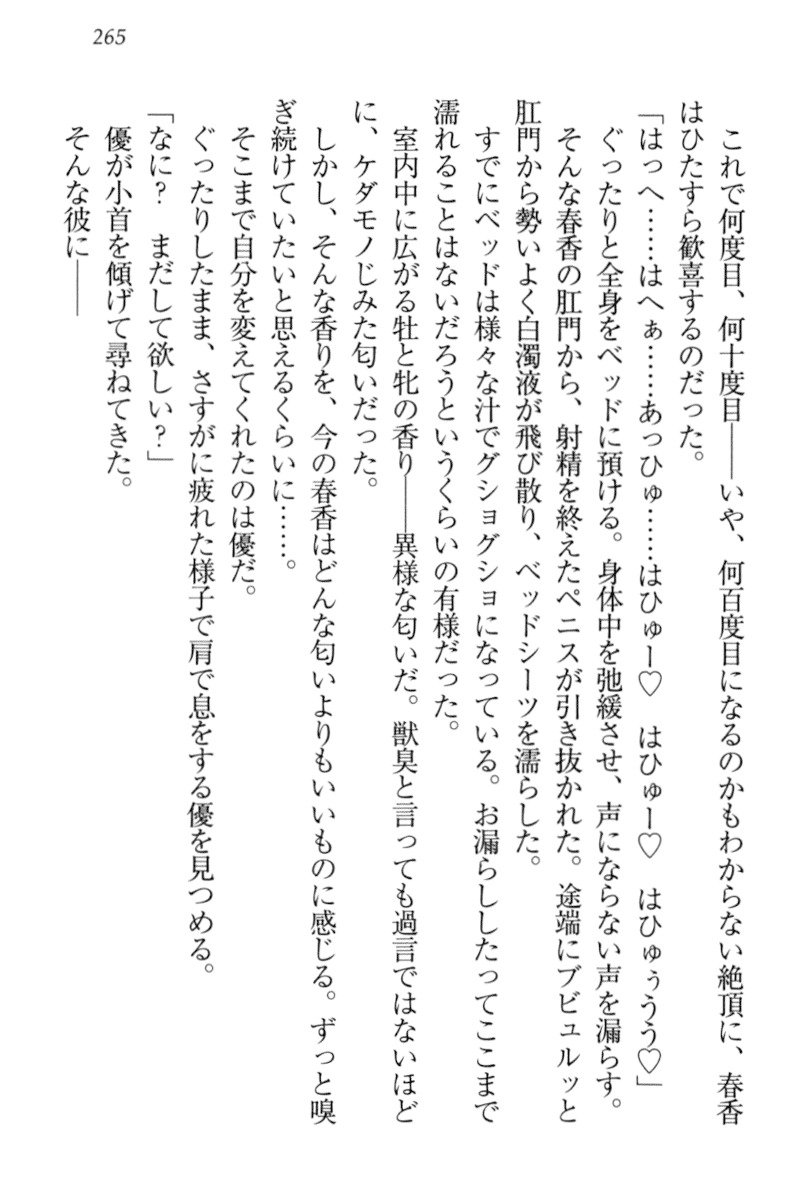 265
これで何度目、何十度目――いや、何百度目になるのかもわからない絶頂に、春香
はひたすら歓喜するのだった。
「はっへ……はへぁ……あっひゅ……はひゅー♡　はひゅー♡　はひゅぅうう♡」
ぐったりと全身をベッドに預ける。身体中を弛緩させ、声にならない声を漏らす。
そんな春香の肛門から、射精を終えたペニスが引き抜かれた。途端にブビュルッと
肛門から勢いよく白濁液が飛び散り、ベッドシーツを濡らした。
すでにベッドは様々な汁でグショグショになっている。お漏らししたってここまで
濡れることはないだろうというくらいの有様だった。
室内中に広がる牡と牝の香り――異様な匂いだ。獣臭と言っても過言ではないほど
に、ケダモノじみた匂いだった。
しかし、そんな香りを、今の春香はどんな匂いよりもいいものに感じる。ずっと嗅
ぎ続けていたいと思えるくらいに……。
そこまで自分を変えてくれたのは優だ。
ぐったりしたまま、さすがに疲れた様子で肩で息をする優を見つめる。
「なに？　まだして欲しい？」
優が小首を傾げて尋ねてきた。
そんな彼に――